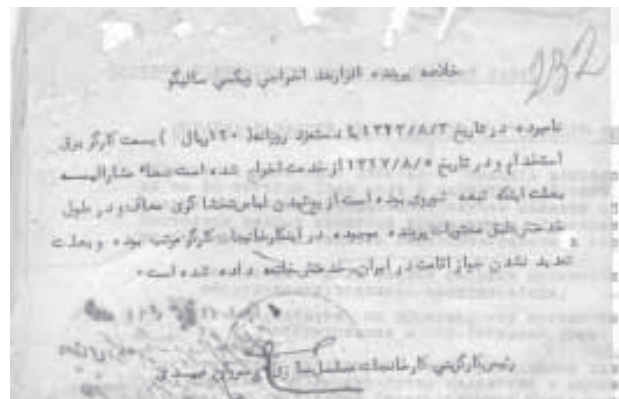 232
خلاصه پرونده افزارمند اخراجی نیکس سالیگو
نامبرده در تاریخ ۱۳۲۲/۸/۳ با دستمزد روزانه ( ۱۲۰ریال ) بسمت کارگر برق
استخدام و در تاریخ ۱۳۴۷/۸/۵ از خدمت اخراج شده است ضمناً مشارالیه
بعلت اینکه تبعه شوروی بوده است از پوشیدن لباس معاف و در طول
خدمتش طبق محتویات پرونده موجوده در اینکارخانجات کارگر مرتب بوده و بعلت
تمدید نشدن جواز اقامت در ایران خدمتش خاتمه داده شده است۰
رئیس کارگزینی کارخانجات مسلسل سازی